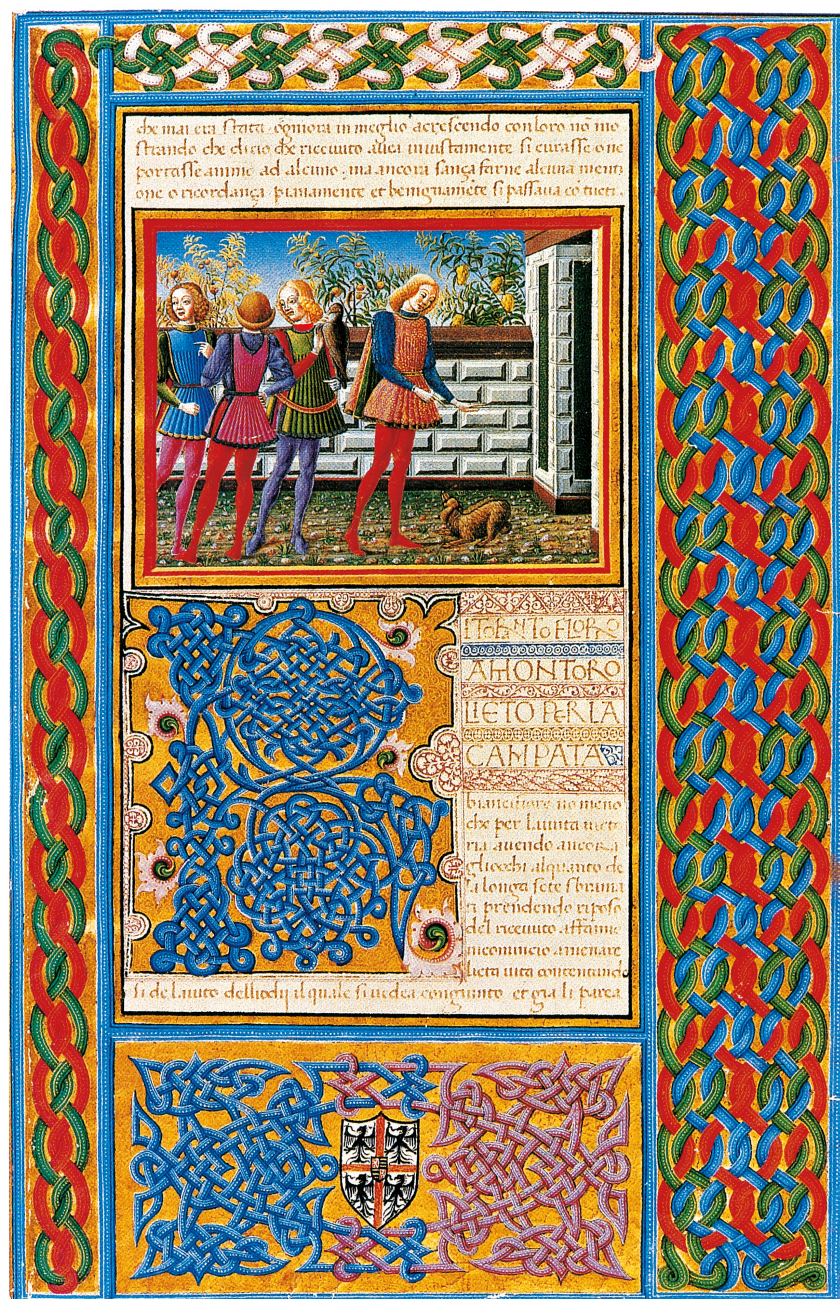 che mai era stata ogniora in meglio acrescendo con loro nō mo
strando che di cio che ricevuto avea iniustamente si curasse o ne
portasse animo ad alcuno ma ancora sança farne alcuna menti
one o ricordança pianamente et benignamēte si passava cō tucti.
AMONTORO
LIETO PER LA
CAMPATA
biancifiore no meno
che per l avuta victo
ria avendo ancora
gliocchi alquanto de
la longa sete sbrama
ti prendendo riposo
del ricevuto affanno
incomincio a menare
lieta vita contentando
si de l avuto dellicchi il quale si vedea congiunto et gia li parea